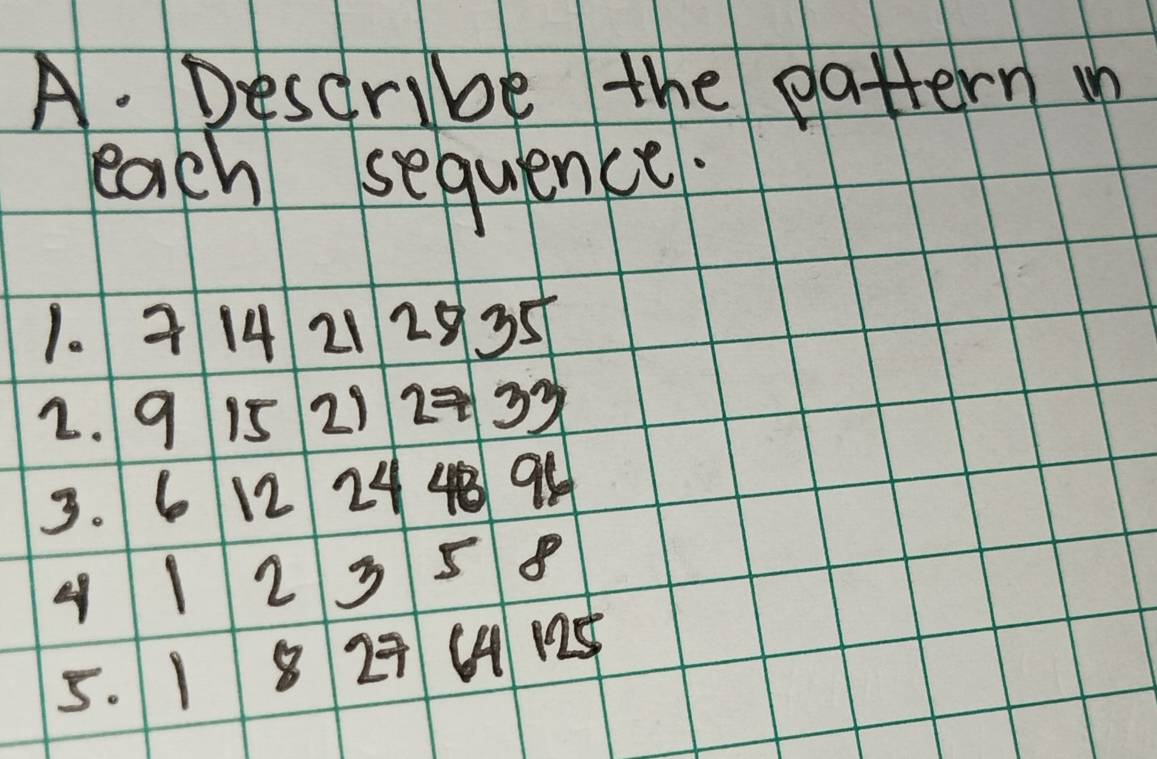 A. Describe the pattern in
each sequence.
1. 7 14 21 28 35
2. 9 15 21 27 33
3. 6 12 24 48 96
4 1 2 3 5 8
5. 1 8 27 64 125